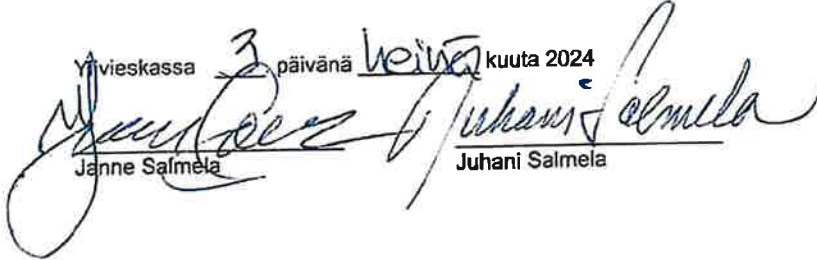 Ylivieskassa 3 päivänä heinä kuuta 2024
Juhani Salmela
Janne Salmela Juhani Salmela